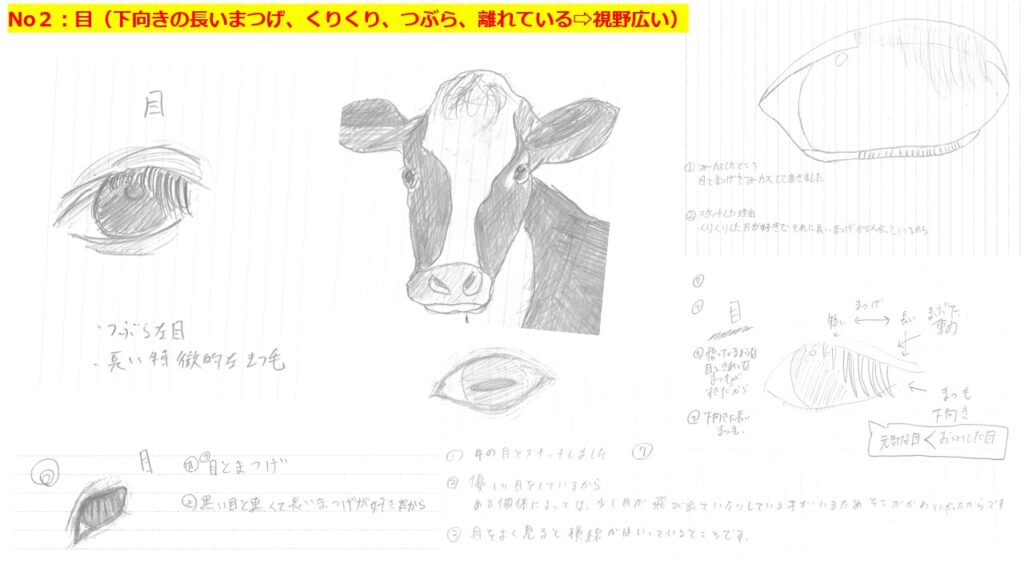 No２：目（下向きの長いまつげ、くりくり、つぶら、離れている⇨視野広い）
目
・つぶらな目
・長い特徴的なまつ毛
① フォーカスしたところ
目とまつげにフォーカスして書きました
② スケッチした理由
くりくりした目が好きで それに長いまつげが
目
まつげ
短い
長い
まぶた
重め
目ときれいな
まつげが
すきだから
③ 下向きた長い
まつも、
まつも
下向き
元気な目 < おっとりした目
目
① 目とまつげ
② 黒い目と黒くて長いまつげが好きだから
① 牛の目をスケッチしました
⑦
② 優しい目をしているから
ある個体によっては、少し目が飛び出ていたりしている
③ 目をよく見ると横線がはいっているところです。